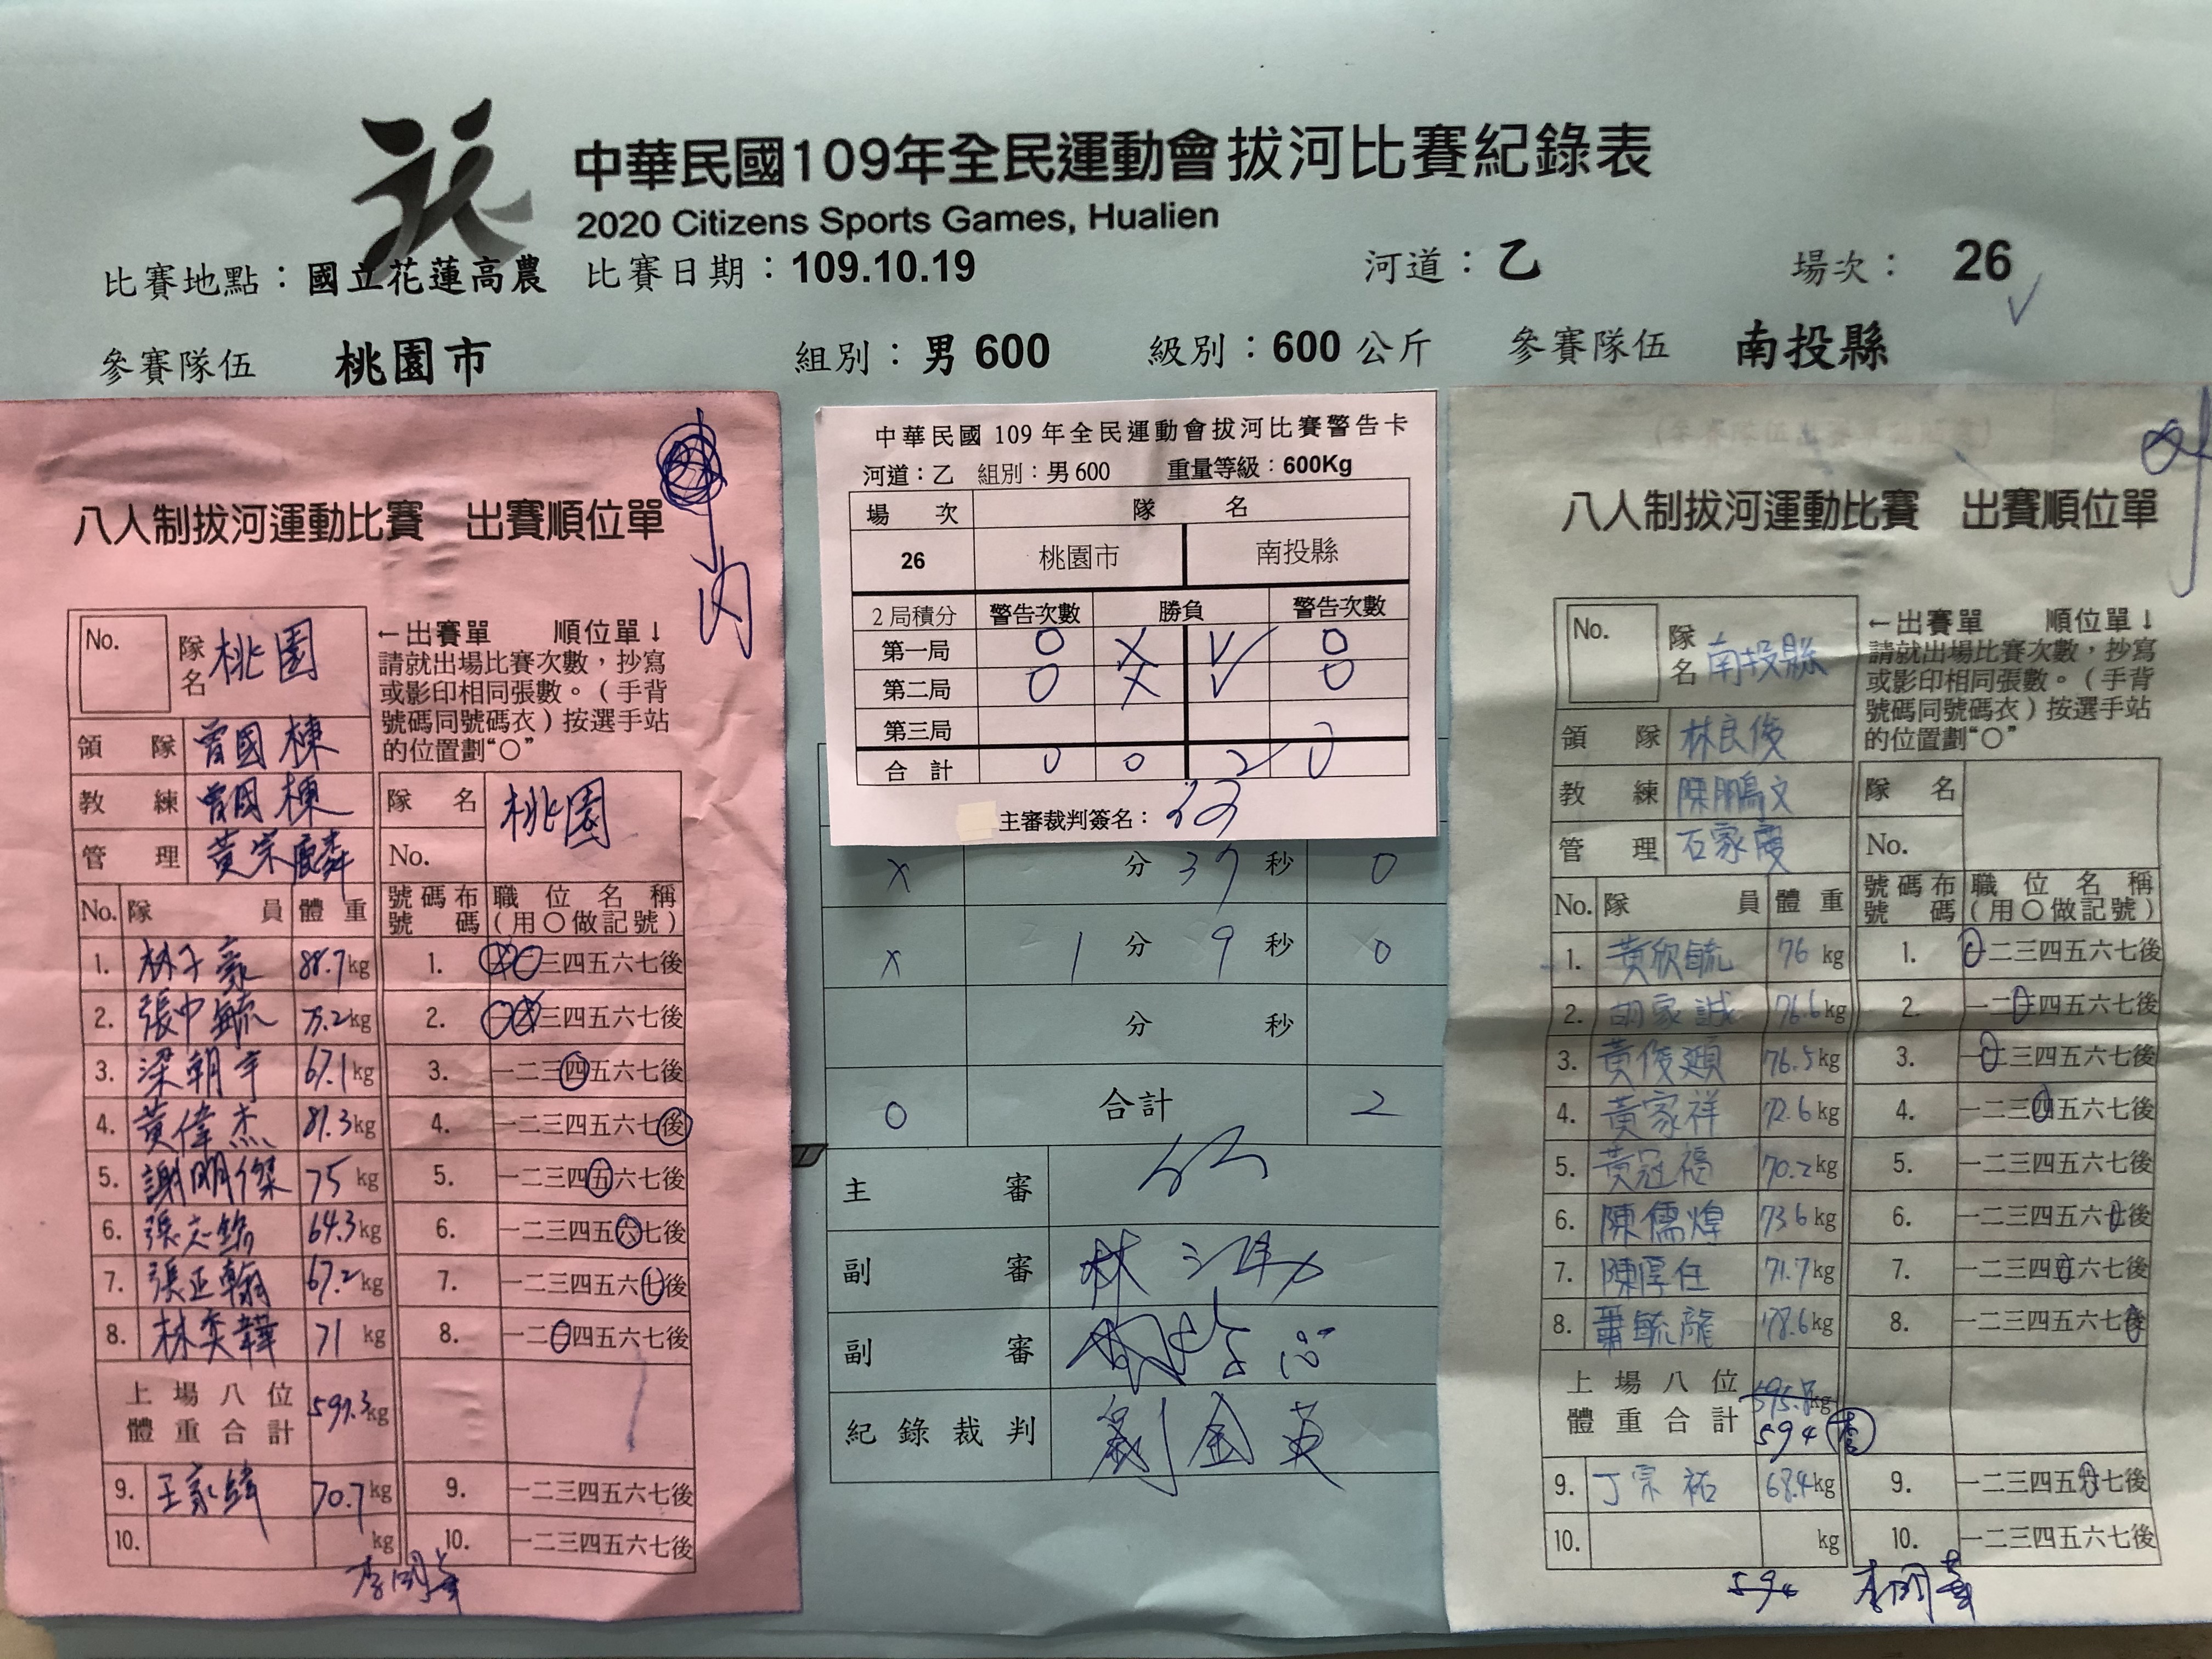 中華民國109年全民運動會拔河比賽紀錄表
2020 Citizens Sports Games, Hualien
比賽地點：國立花蓮高農 比賽日期：109.10.19 河道：乙 場次： 26
參賽隊伍 桃園市 組別：男 600 級別：600 公斤 參賽隊伍 南投縣
八人制拔河運動比賽 出賽順位單
No. 隊名 桃園
←出賽單 順位單↓
請就出場比賽次數，抄寫
或影印相同張數。（手背
號碼同號碼衣）按選手站
的位置劃“○”
領隊 曾國棟
教練 曾國棟 隊名 桃園
管理 黃宗麟 No.
No. 隊員 體重 號碼布號碼 職位名稱（用○做記號）
1. 林子豪 88.7kg 1. 三四五六七後
2. 張中毓 75.2kg 2. 三四五六七後
3. 梁朝宇 67.1kg 3. 一二三四五六七後
4. 黃偉杰 81.3kg 4. 一二三四五六七後
5. 謝明傑 75 kg 5. 一二三四五六七後
6. 張志銘 64.3kg 6. 一二三四五六七後
7. 張正翰 67.2kg 7. 一二三四五六七後
8. 林奕韡 71 kg 8. 一二三四五六七後
上場八位
體重合計 kg
9. 王家緯 70.7kg 9. 一二三四五六七後
10. kg 10. 一二三四五六七後
中華民國 109 年全民運動會拔河比賽警告卡
河道：乙 組別：男 600 重量等級：600Kg
場次 隊名
26 桃園市 南投縣
2 局積分 警告次數 勝負 警告次數
第一局 0 X ✓ 0
第二局 0 X ✓ 0
第三局
合計 0 0 2 0
主審裁判簽名：
x 分 37 秒 0
x 1 分 9 秒 0
分 秒
0 合計 2
主審
副審
副審
紀錄裁判 劉金英
八人制拔河運動比賽 出賽順位單
No. 隊名 南投縣
←出賽單 順位單↓
請就出場比賽次數，抄寫
或影印相同張數。（手背
號碼同號碼衣）按選手站
的位置劃“○”
領隊 林良俊
教練 陳鵬文 隊名
管理 石家慶 No.
No. 隊員 體重 號碼布號碼 職位名稱（用○做記號）
1. 黃欣毓 76 kg 1. 一二三四五六七後
2. 胡家誠 76.6kg 2. 一二三四五六七後
3. 黃俊穎 76.5kg 3. 一二三四五六七後
4. 黃家祥 72.6kg 4. 一二三四五六七後
5. 黃冠福 70.2kg 5. 一二三四五六七後
6. 陳儒煌 73.6kg 6. 一二三四五六七後
7. 陳厚任 71.7kg 7. 一二三四五六七後
8. 蕭毓龍 78.6kg 8. 一二三四五六七後
上場八位 595.8kg
體重合計 594
9. 丁宗祐 68.4kg 9. 一二三四五六七後
10. kg 10. 一二三四五六七後
594